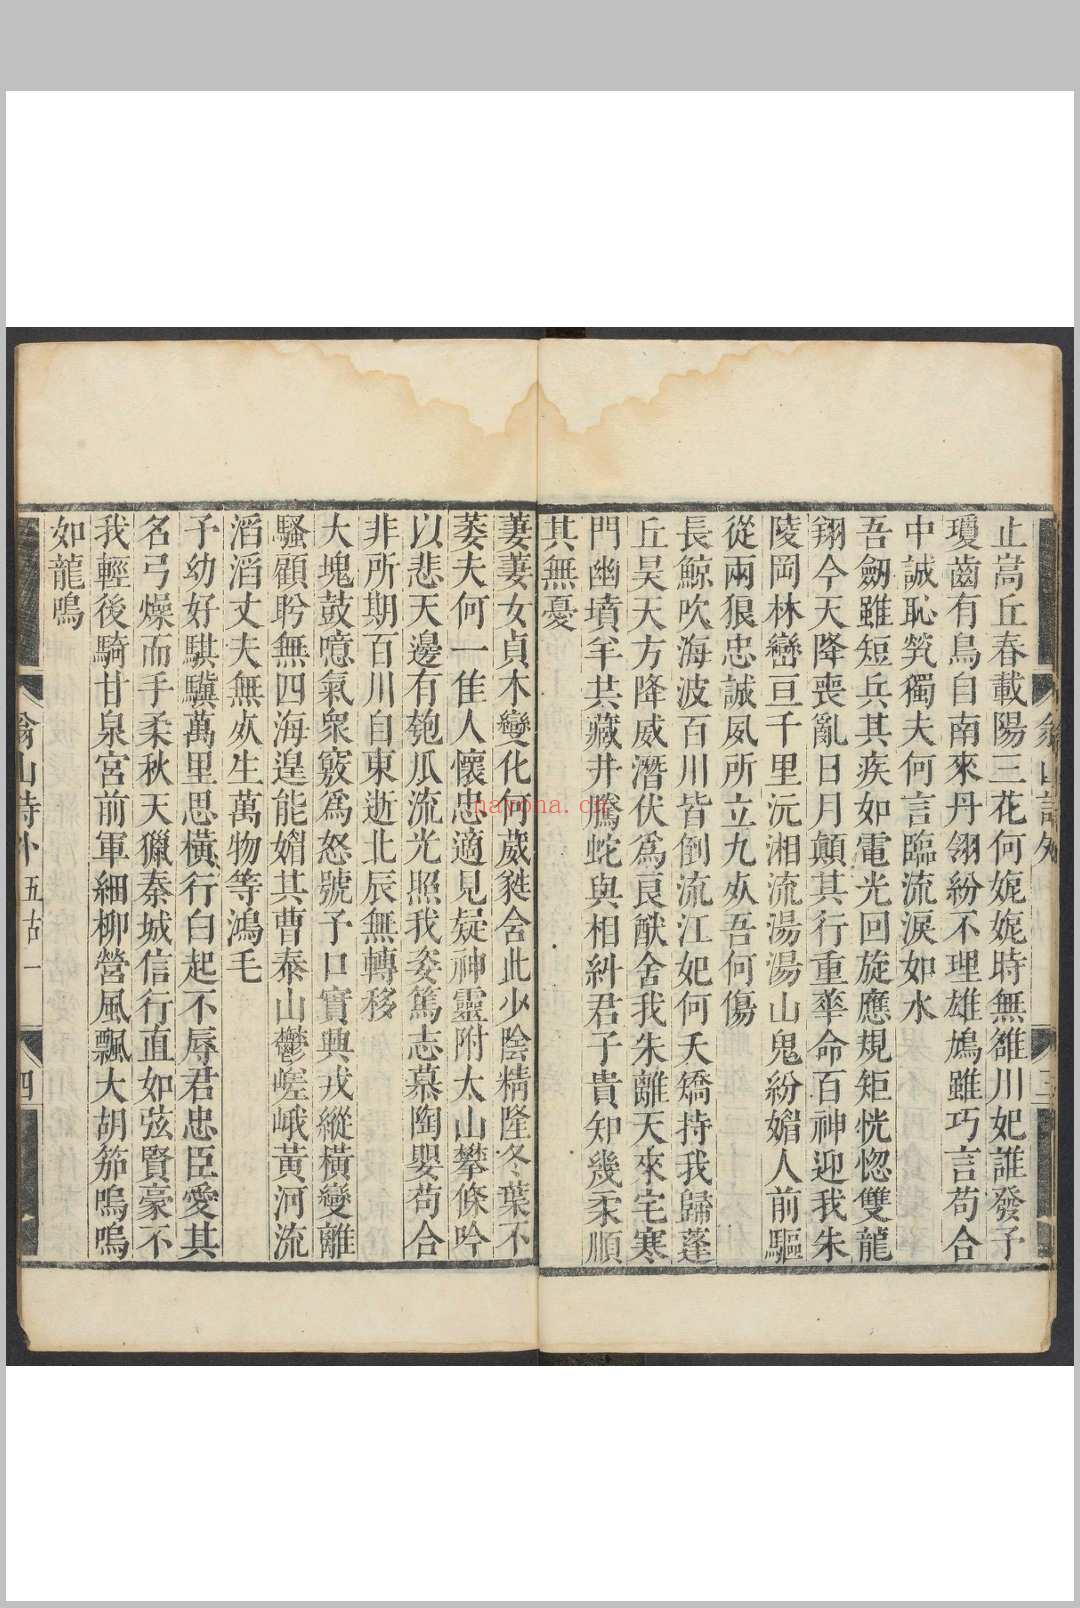 翁山詩外
三
止嵩丘春載陽三花何妮妮時無雒川妃誰發予
瓊齒有鳥自南來丹翎紛不理雄鳩雖巧言苟合
中誠恥煢獨夫何言臨流淚如水
吾劒雖短兵其疾如電光回旋應規矩恍惚雙龍
翔今天降喪亂日月顛其行重華命百神迎我朱
陵岡林巒亘千里沅湘流湯湯山鬼紛媚人前驅
從兩狼忠誠夙所立九死吾何傷
長鯨吹海波百川皆倒流江妃何夭矯持我歸蓬
丘昊天方降威潛伏爲良猷舍我朱離天來宅寒
門幽墳羊共藏井騰蛇與相糾君子貴知幾柔順
其無憂
萋萋女貞木變化何葳甤含此少陰精隆冬葉不
萎夫何一佳人懷忠適見疑神靈附太山攀條吟
以悲天邊有匏瓜流光照我姿篤志慕陶嬰苟合
非所期百川自東逝北辰無轉移
大塊鼓噫氣衆竅爲怒號予口實興戎縱橫變離
騷顧盻無四海遑能媚其曹泰山鬱嵯峨黃河流
滔滔丈夫無死生萬物等鴻毛
予幼好騏驥萬里思橫行白起不辱君忠臣愛其
名弓燥而手柔秋天獵秦城信行直如弦賢豪不
我輕後騎甘泉宮前軍細柳營風飄大胡笳嗚嗚
如龍鳴
翁山詩外 五古一
四
nayona.cn